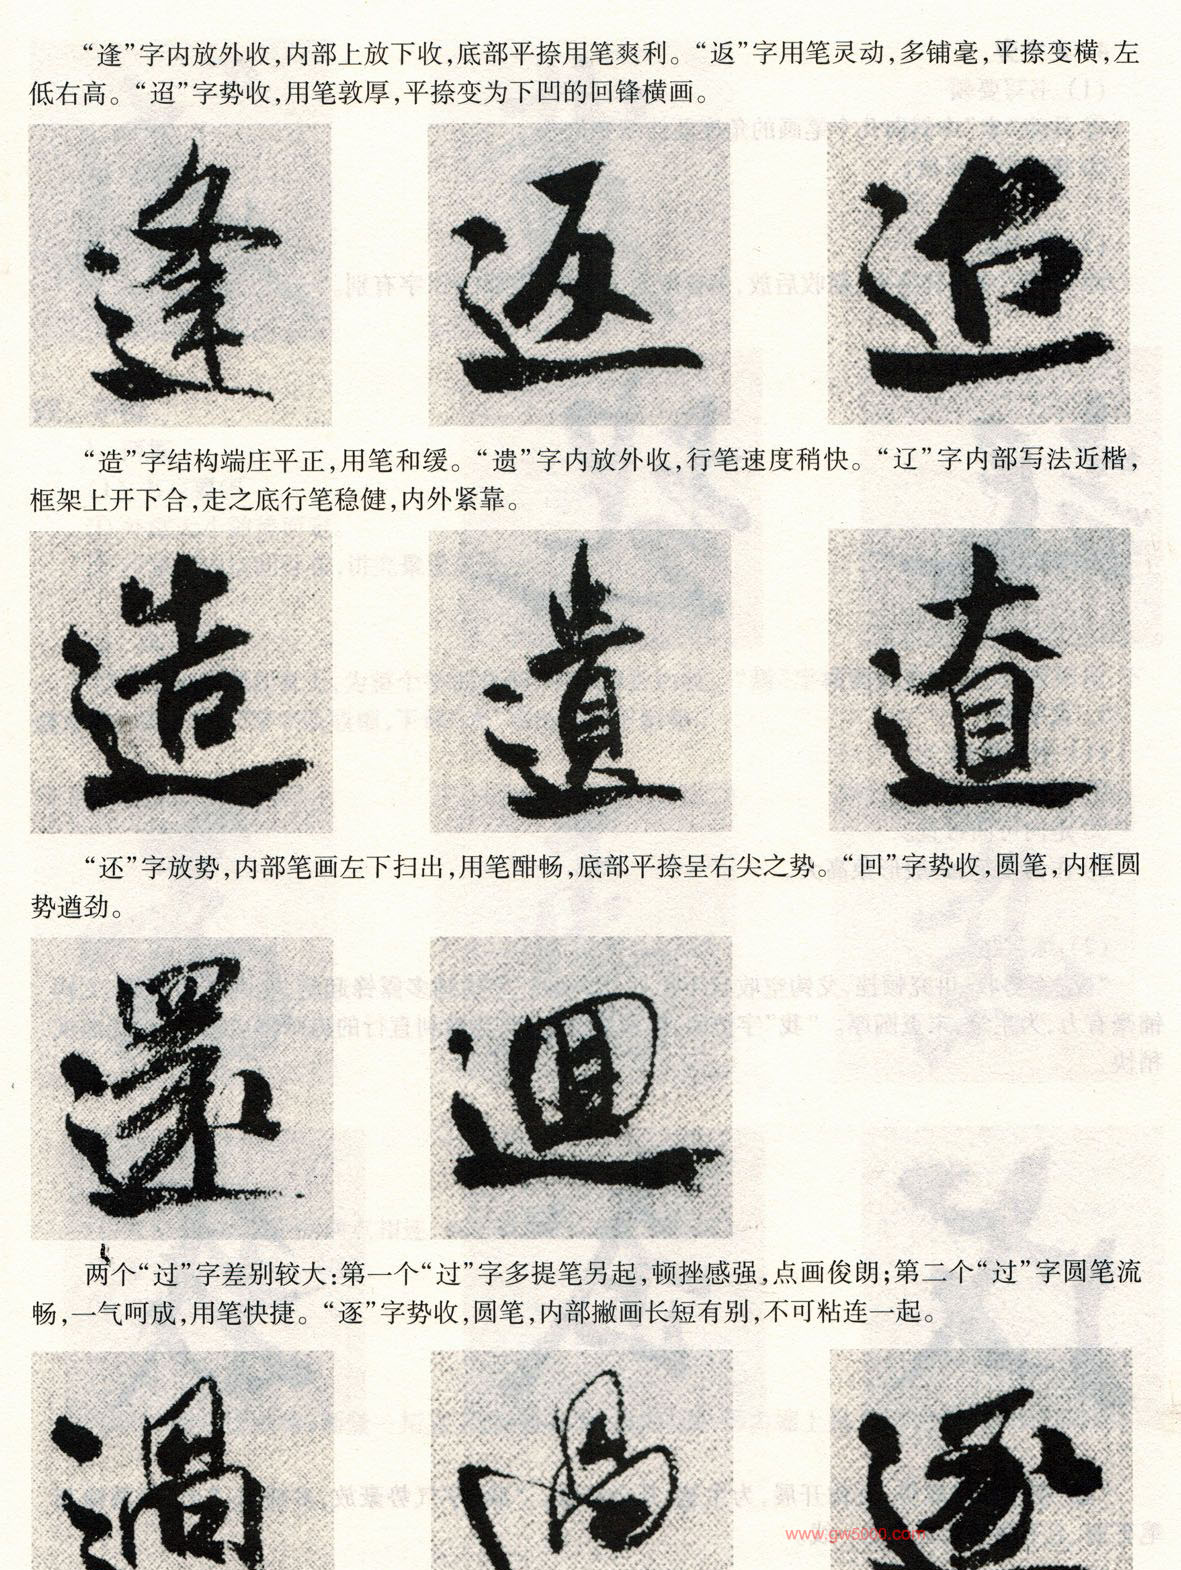 “逢”字内放外收，内部上放下收，底部平捺用笔爽利。“返”字用笔灵动，多铺毫，平捺变横，左
低右高。“迢”字势收，用笔敦厚，平捺变为下凹的回锋横画。
逢 返 迢
“造”字结构端庄平正，用笔和缓。“遗”字内放外收，行笔速度稍快。“辽”字内部写法近楷，
框架上开下合，走之底行笔稳健，内外紧靠。
造 遺
“还”字放势，内部笔画左下扫出，用笔酣畅，底部平捺呈右尖之势。“回”字势收，圆笔，内框圆
势遒劲。
還 迴
两个“过”字差别较大：第一个“过”字多提笔另起，顿挫感强，点画俊朗；第二个“过”字圆笔流
畅，一气呵成，用笔快捷。“逐”字势收，圆笔，内部撇画长短有别，不可粘连一起。
過 過 逐
www.gw5000.com